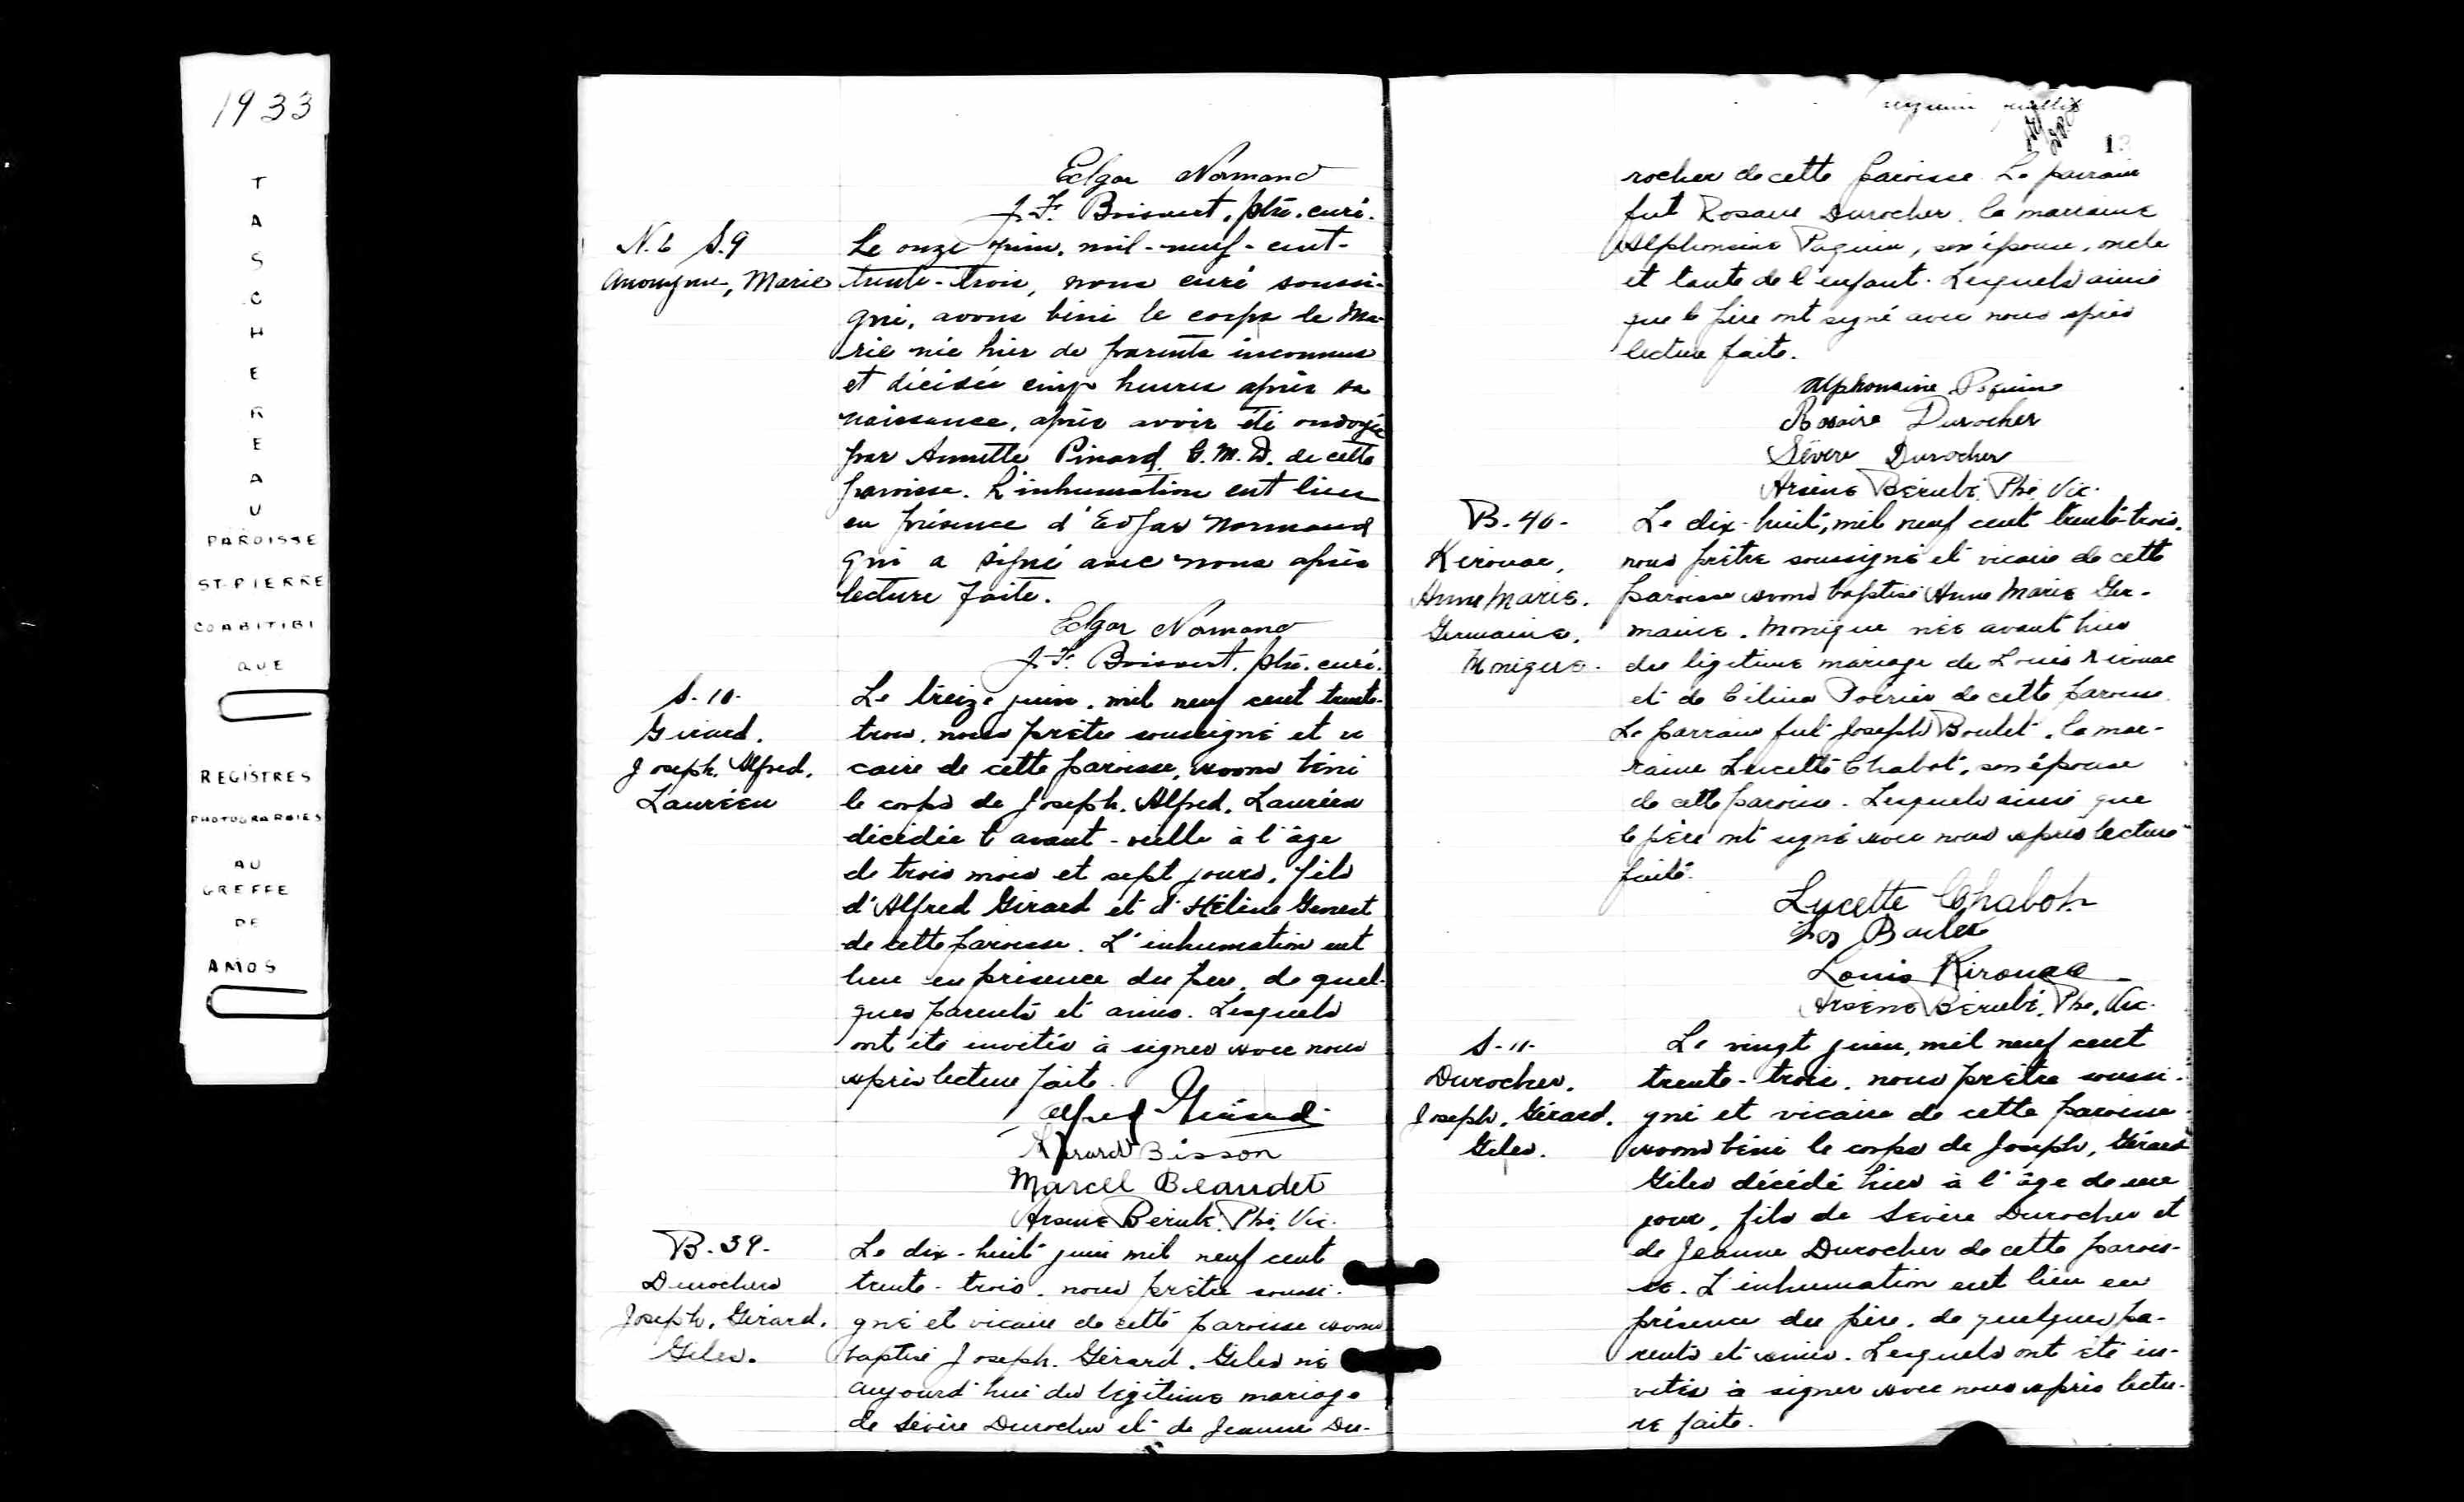 1933
TASCHEREAU
PAROISSE
ST-PIERRE
COABITIBI
QUE
REGISTRES
PHOTOGRAPHIES
AU
GREFFE
DE
AMOS
Edgar Normand
J.F. Boisvert, ptre. curé.
N. 6 S. 9
Anonyme, Marie
Le onze juin, mil-neuf-cent-
trente-trois, nous curé soussi-
gné, avons béni le corps de Ma-
rie née hier de parents inconnus
et décédée cinq heures après sa
naissance, après avoir été ondoyée
par Annette Pinard G.M.D. de cette
paroisse. L'inhumation eut lieu
en présence d'Edgar Normand
qui a signé avec nous après
lecture faite.
Edgar Normand
J.F. Boisvert, ptre. curé.
S. 10.
Girard.
Joseph. Alfred.
Lauréen
Le treize juin. mil neuf cent trente-
trois. nous prêtre soussigné et vi
caire de cette paroisse, avons béni
le corps de Joseph. Alfred. Lauréen
décédée l'avant-veille à l'âge
de trois mois et sept jours, fils
d'Alfred Girard et d'Hélène Genest
de cette paroisse. L'inhumation eut
lieu en présence du père, de quel-
ques parents et amis. Lesquels
ont été invités à signer avec nous
après lecture faite.
Alfred Girard
Bisson
Marcel Beaudet
Arsène Bérubé. Ptre. Vic.
B. 39.
Durocher
Joseph. Gérard.
Giles.
Le dix-huit juin mil neuf cent
trente-trois. nous prêtre soussi-
gné et vicaire de cette paroisse avons
baptisé Joseph. Gérard. Giles né
aujourd'hui du légitime mariage
de Sévère Durocher et de Jeanne Du-
13
rocher de cette paroisse. Le parrain
fut Rosaire Durocher. la marraine
Alphonsine Paquin, son épouse, oncle
et tante de l'enfant. Lesquels ainsi
que le père ont signé avec nous après
lecture faite.
Alphonsine Paquin
Rosaire Durocher
Sévère Durocher
Arsène Bérubé. Ptre. Vic.
B. 40-
Kirouac,
Anne Marie.
Germaine.
Monique.
Le dix-huit, mil neuf cent trente-trois.
nous prêtre soussigné et vicaire de cette
paroisse avons baptisé Anne Marie Ger-
maine. Monique née avant hier
du légitime mariage de Louis Kirouac
et de Célina Poirier de cette paroisse.
Le parrain fut Joseph Boulet. la mar-
raine Lucette Chabot. son épouse
de cette paroisse. Lesquels ainsi que
le père ont signé avec nous après lecture
faite.
Lucette Chabot
Jos Boulet
Louis Kirouac
Arsène Bérubé. Ptre. Vic.
S. 11.
Durocher.
Joseph. Gérard.
Giles.
Le vingt juin, mil neuf cent
trente-trois. nous prêtre soussi-
gné et vicaire de cette paroisse
avons béni le corps de Joseph, Gérard
Giles décédé hier à l'âge de un
jour, fils de Sévère Durocher et
de Jeanne Durocher de cette parois-
se. L'inhumation eut lieu en
présence du père, de quelques pa-
rents et amis. Lesquels ont été in-
vités à signer avec nous après lectu-
re faite.